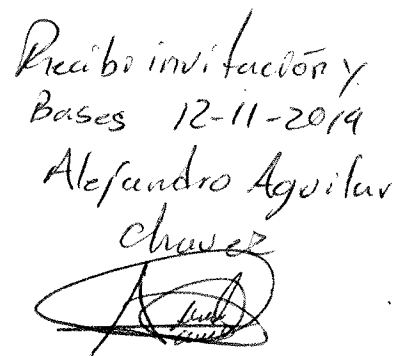 Recibí invitación y
Bases 12-11-2019
Alejandro Aguilar
Chavez